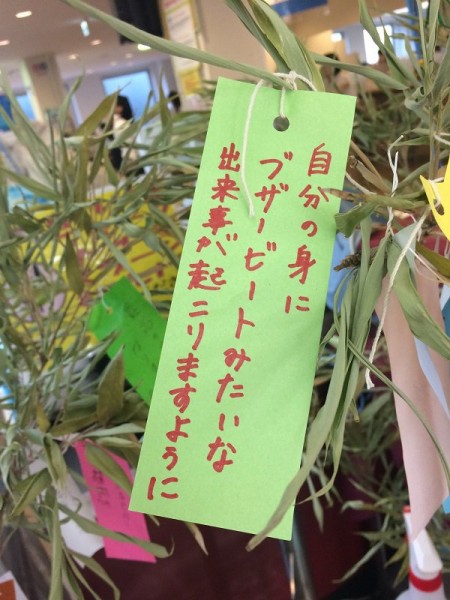 自分の身に
ブザービートみたいな
出来事が起こりますように